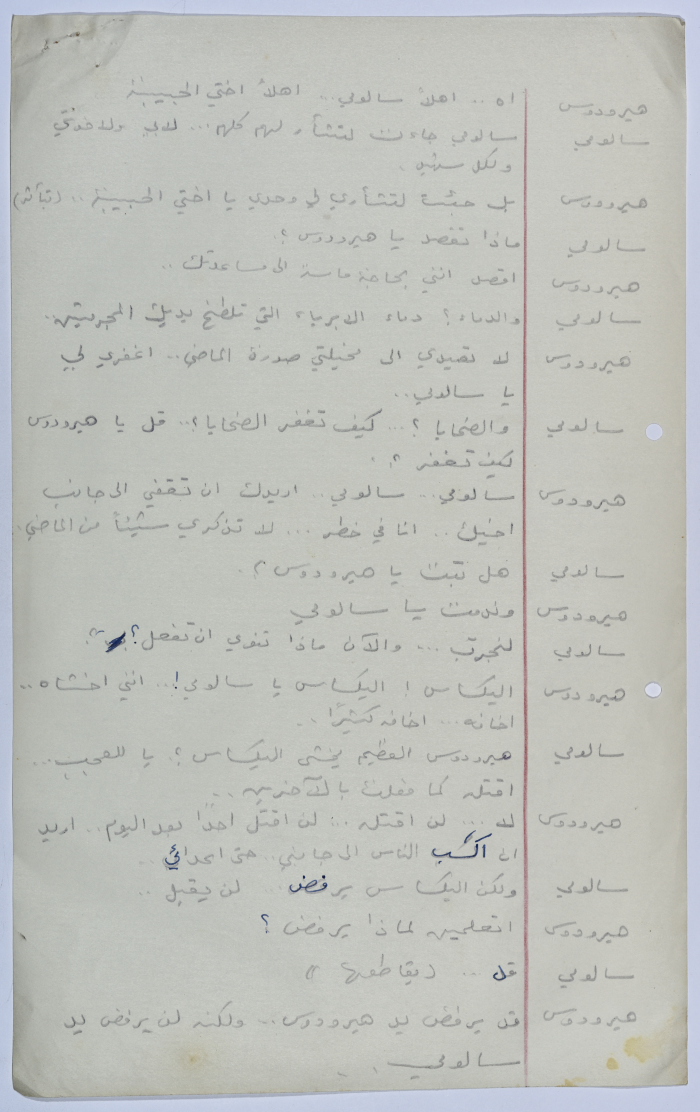 هيرودوس اه .. اهلاً سالومي... اهلاً اختي الحبيبة
سالومي سالومي جاءت لتثأر لهم كلهم... لابي ولاخوتي
ولكل شهيد.
هيرودوس بل جئت لتثأري لي وحدي يا اختي الحبيبة .. (بتأثر)
سالومي ماذا تقصد يا هيرودوس ؟.
هيرودوس اقصد انني بحاجة ماسة الى مساعدتك ..
سالومي والدماء؟ دماء الابرياء التي تلطخ يديك المجرمتين..
هيرودوس لا تعيدي الى مخيلتي صورة الماضي.. اغفري لي
يا سالومي..
سالومي والضحايا ؟... كيف تغفر الضحايا؟.. قل يا هيرودوس
كيف تغفر ؟.
هيرودوس سالومي.. سالومي.. اريدك ان تقفي الى جانب
اخيك .. انا في خطر ... لا تذكري شيئاً من الماضي.
سالومي هل تبت يا هيرودوس ؟.
هيرودوس وندمت يا سالومي
سالومي لنجرب ... والآن ماذا تنوي ان تفعل؟
هيرودوس اليكاس ! اليكاس يا سالومي!.. انني اخشاه ..
اخافه... اخافه كثيرًا ..
سالومي هيرودوس العظيم يخشى اليكاس ؟. يا للعجب...
اقتله كما فعلت بالآخرين ..
هيرودوس لا ... لن اقتله ... لن اقتل احدًا بعد اليوم.. اريد
ان اكسب الناس الى جانبي.. حتى اعدائي ..
سالومي ولكن اليكاس يرفض .. لن يقبل ..
هيرودوس اتعلمين لماذا يرفض ؟
سالومي قل ... (يقاطعها)
هيرودوس قد يرفض يد هيرودوس... ولكنه لن يرفض يد
سالومي ..